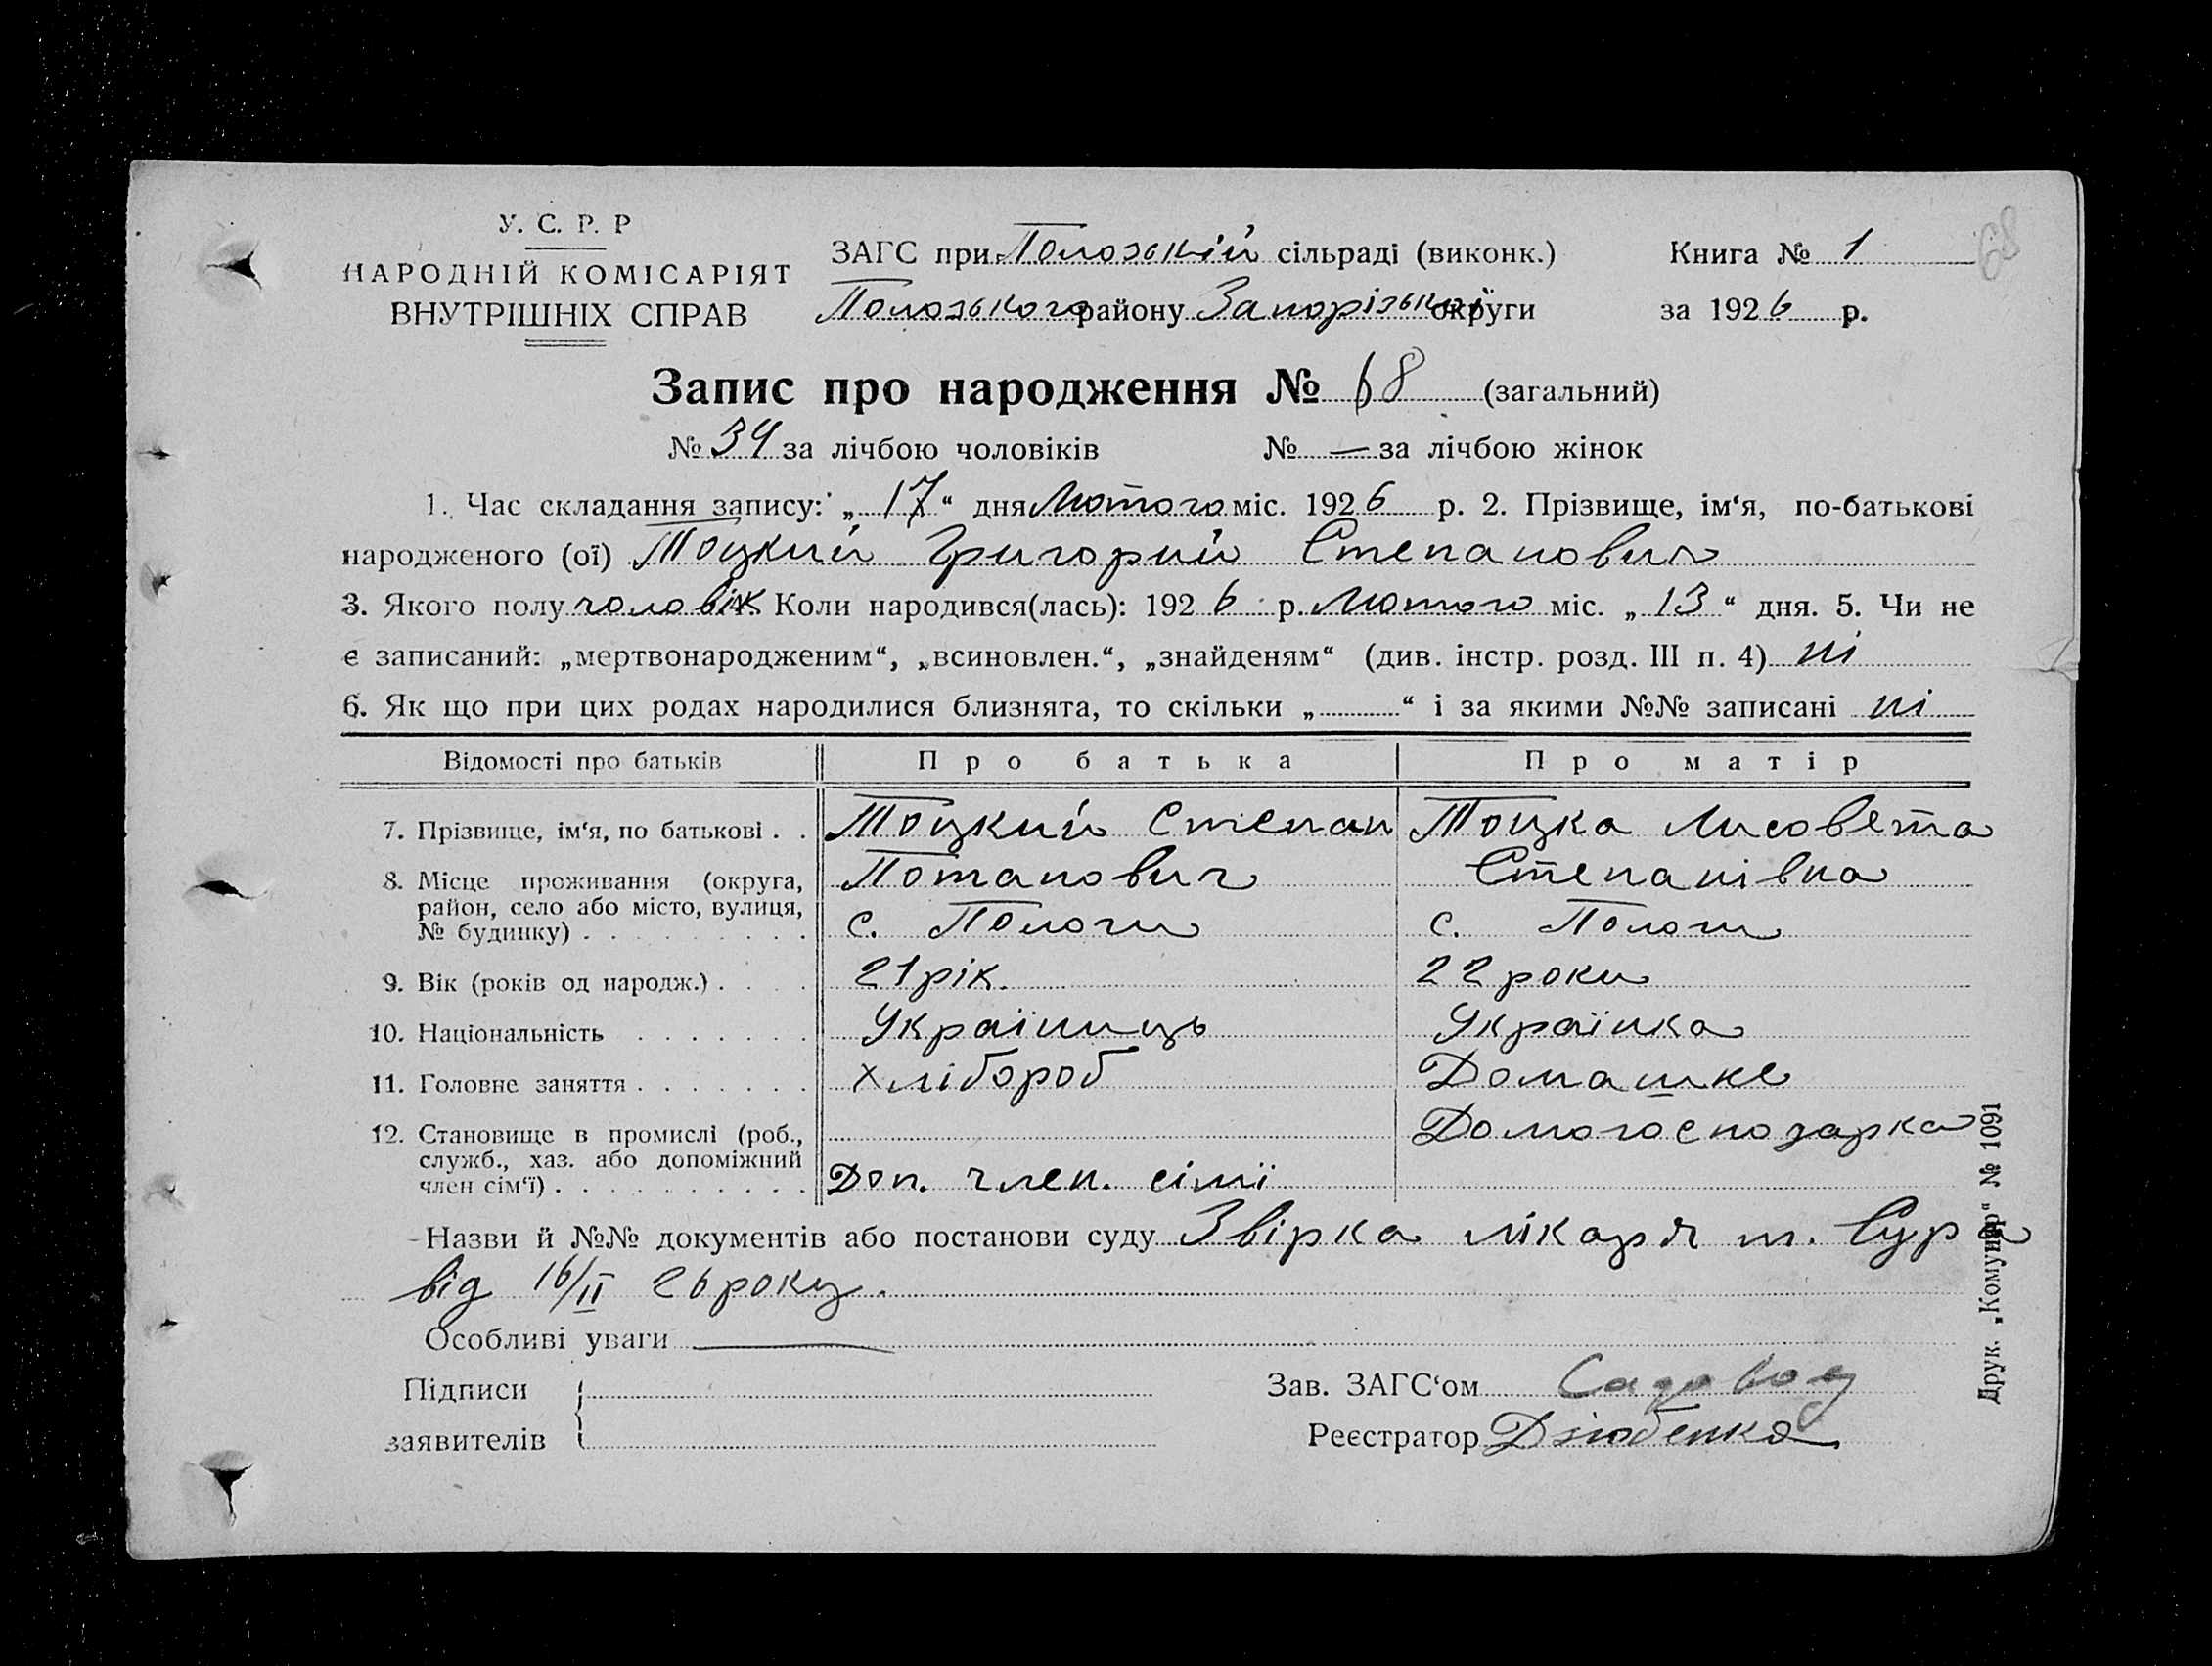 У. С. Р. Р
НАРОДНІЙ КОМІСАРІЯТ
ВНУТРІШНІХ СПРАВ
ЗАГС при Положській сільраді (виконк.)
Положського району Запорізької округи
Книга № 1
за 1926 р.
68
Запис про народження № 68 (загальний)
№ 34 за лічбою чоловіків № — за лічбою жінок
1. Час складання запису: „17“ дня Лютого міс. 1926 р. 2. Прізвище, ім‘я, по-батькові
народженого (ої) Тоцкий Григорий Степанович
3. Якого полу чоловік. Коли народився(лась): 1926 р. Лютого міс. „13“ дня. 5. Чи не
є записаний: „мертвонародженим“, „всиновлен.“, „знайденям“ (див. інстр. розд. III п. 4) ні
6. Як що при цих родах народилися близнята, то скільки „ “ і за якими №№ записані ні
Відомості про батьків Про батька Про матір
7. Прізвище, ім‘я, по батькові . . Тоцкий Степан Тоцка Лисовета
Потапович Степанівна
8. Місце проживання (округа,
район, село або місто, вулиця,
№ будинку) . . . . . . . . . с. Пологи с. Пологи
9. Вік (років од народж.) . . . . 21 рік. 22 роки
10. Національність . . . . . . . Україниць Українка
11. Головне заняття . . . . . . . Хлібороб Домашне
12. Становище в промислі (роб.,
служб., хаз. або допоміжний
член сім‘ї) . . . . . . . . . . Доп. член. сімї Домогосподарка
Назви й №№ документів або постанови суду Звірка лікаря т. Сура
від 16/II 26 року.
Особливі уваги —
Підписи
заявителів
Зав. ЗАГС‘ом Садовод
Реєстратор Дзюбенко
Друк. „Комунар“ № 1091